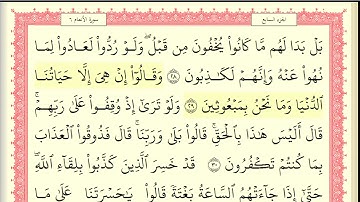 الجزء السابع
سورة الأنعام ٦
بَلْ بَدَا لَهُم مَّا كَانُوا۟ يُخْفُونَ مِن قَبْلُ ۖ وَلَوْ رُدُّوا۟ لَعَادُوا۟ لِمَا
نُهُوا۟ عَنْهُ وَإِنَّهُمْ لَكَـٰذِبُونَ ٢٨ وَقَالُوٓا۟ إِنْ هِىَ إِلَّا حَيَاتُنَا
ٱلدُّنْيَا وَمَا نَحْنُ بِمَبْعُوثِينَ ٢٩ وَلَوْ تَرَىٰٓ إِذْ وُقِفُوا۟ عَلَىٰ رَبِّهِمْ ۚ
قَالَ أَلَيْسَ هَـٰذَا بِٱلْحَقِّ ۚ قَالُوا۟ بَلَىٰ وَرَبِّنَا ۚ قَالَ فَذُوقُوا۟ ٱلْعَذَابَ
بِمَا كُنتُمْ تَكْفُرُونَ ٣٠ قَدْ خَسِرَ ٱلَّذِينَ كَذَّبُوا۟ بِلِقَآءِ ٱللَّهِ ۖ
حَتَّىٰٓ إِذَا جَآءَتْهُمُ ٱلسَّاعَةُ بَغْتَةً قَالُوا۟ يَـٰحَسْرَتَنَا عَلَىٰ مَا